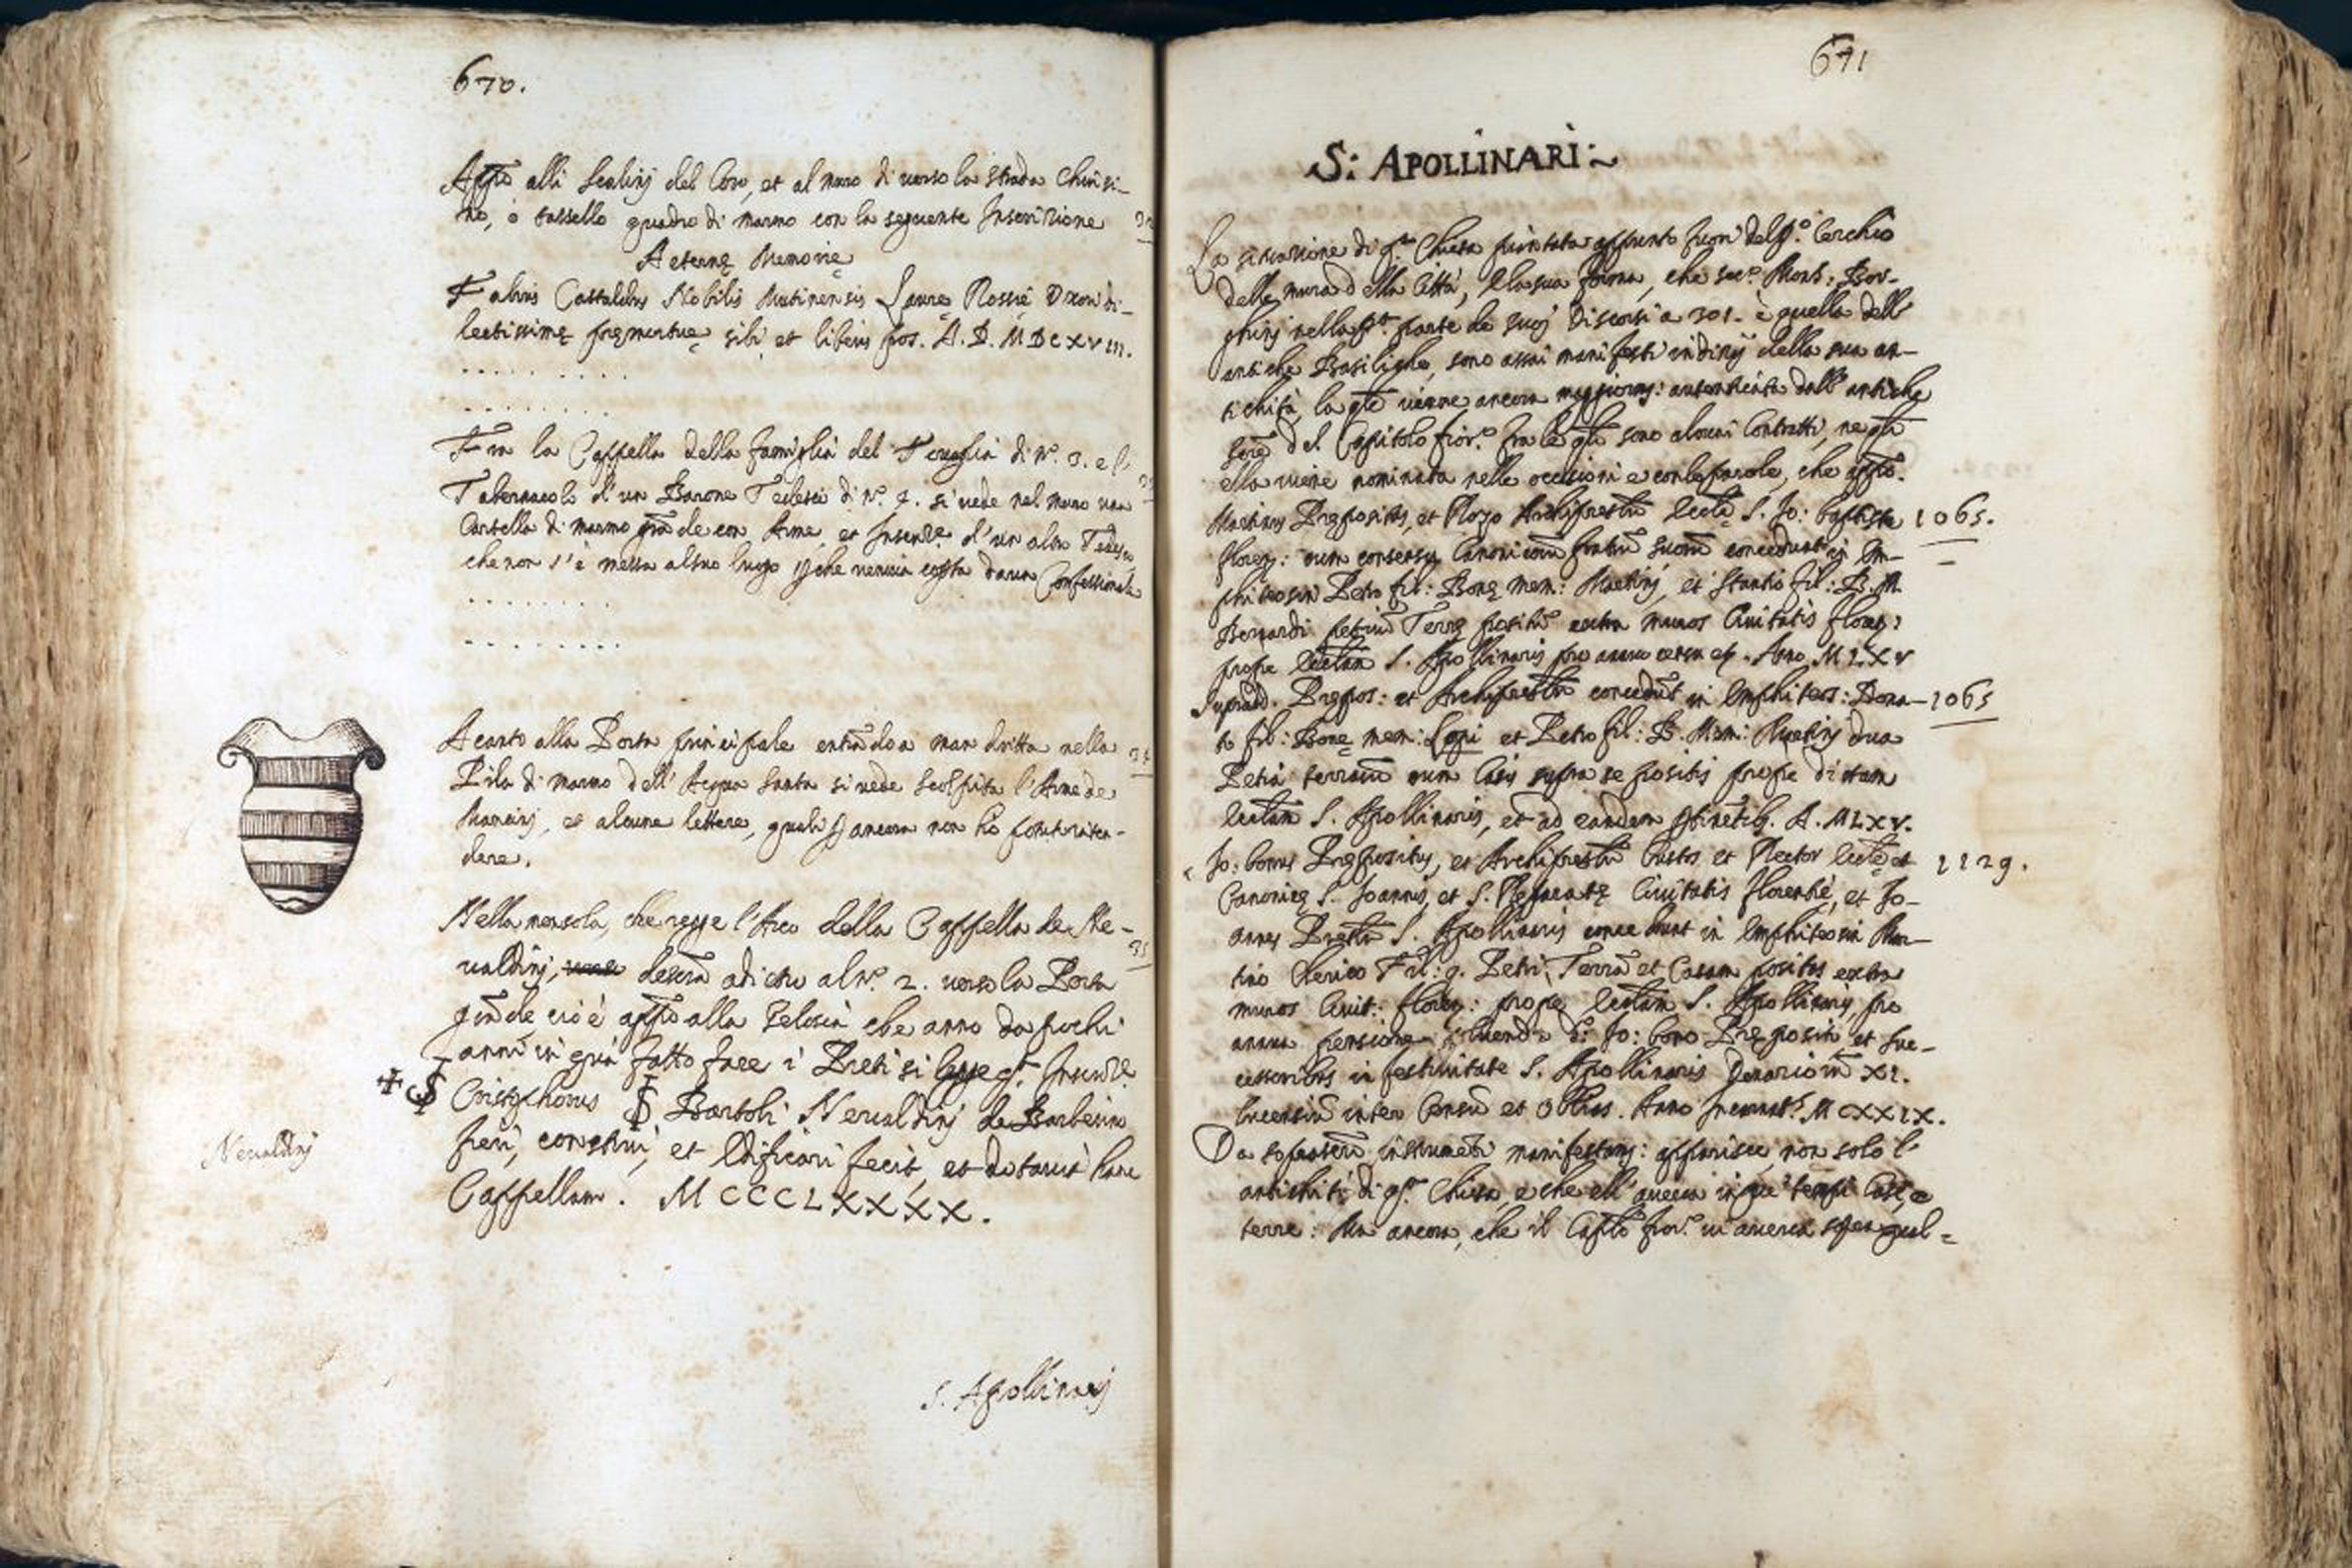 670.
App.o alli Scalinj del Coro, et al muro di uerso la strada Chiusi-
no, ò tassello quadro di marmo con la seguente Inscrizione
Aeternę Memorię
Fabius Castaldus Nobilis Mutinensis Laurę Rossię Uxori di-
lectissimę pręmortuę sibi et liberis pos. A. D. MDCXVIII.
. . . . . . . . . .
. . . . . . . . .
Fra la Cappella della famiglia del Touaglia di N.o 3. e l
Tabernacolo d'un Barone Tedesco di N.o 4. si uede nel muro una
Cartella di marmo grãde con Arme, et Inscriz.e d'un altro Tedesco
che non s'è messa al suo luogo che ueniua da un Confessionale
. . . . . . . .
. . . . . . . . .
Acanto alla Porta principale entrãdo a man dritta nella
Pila di marmo dell' Acqua Santa si uede scolpita l'Arme de
Mancinj, et alcune lettere, quali ancora non ho potuto inten-
dere.
Nella mensola, che regge l'Arco della Cappella de Ne-
ualdinj, descrã adietro al N.o 2. uerso la Porta
grãde, cioè app.o alla Gelosia che anno da pochi
anni in quà fatto fare i Preti si legge q.ta Inscriz.e
Cristophorus S Bartoli Neualdinj de Barberino
fieri, construi, et Edificari fecit, et dotauit hanc
Cappellam. MCCCLXXXX.
Neualdinj
S. Apollinarj
671
S: APOLLINARI:~
La situazione di q.ta Chiesa piantata appunto fuori del p.o Cerchio
delle mura della Città, e la sua forma, che sec.o Mons: Bor-
ghinj nella p.ta parte de suoj Discorsi a 301. è quella dell'
antiche Basiliche, sono assai manifesti indizij della sua an-
tichità, la qle uiene ancora maggiorm: autenticata dall' antiche
d S. Capitolo fior.o fra le qli sono alcuni Contratti, ne qli
ella uiene nominata nelle occasioni e con le parole, che app.o
Martinus Prępositus, et Rozo Archipresbr Ecclę S. Jo: Baptistę 1065.
floren: cum consensu Canonicorũ fratrũ suorũ concedunt in Em-
phiteosin Petro fil: Bonę mem: Martinj, et Stantio fil: B. M.
Bernardi petiũ Terrę positũ extra muros Ciuitatis floren:
prope Ecclam S. Apollinaris pro annuo censu Anno MLXV
Suprad. Prępos: et Archipresbr concedũt in Emphiteos: Dona- 1065
to fil: Bonę mem: et Petro fil: B. Mem: Martinj duo
Petia terrarũ cum Casis supra se positis prope dictam
Ecclam S. Apollinaris, et ad eandem A. MLXV.
Jo: bonus Prępositus, et Archipresbr Custos et Rector Ecclę et 1129.
Canonicę S. Joannis, et S. Reparatę Ciuitatis florentię, et Jo-
annes Presbr S. Apollinaris concedunt in Emphiteosin Mar-
tino Clerico Fil: q. Petri, Terrã et Casam positas extra
muros Ciuit: floren: prope Ecclam S. Apollinaris, pro
annua pensione soluenda d: Jo: bono Pręposito et suc-
cessoribus in festiuitate S. Apollinaris Denariorũ XI.
Lucensiũ inter Censũ et Oblias. Anno Incarnat.s MCXXIX.
Da sopascritti instrumẽti manifestam: apparisce non solo l'
antichità di q.ta Chiesa, e che ell' aueua in que' tempi Case, e
terre: Ma ancora, che il Caplo fior.o ui aueua sopra qual=